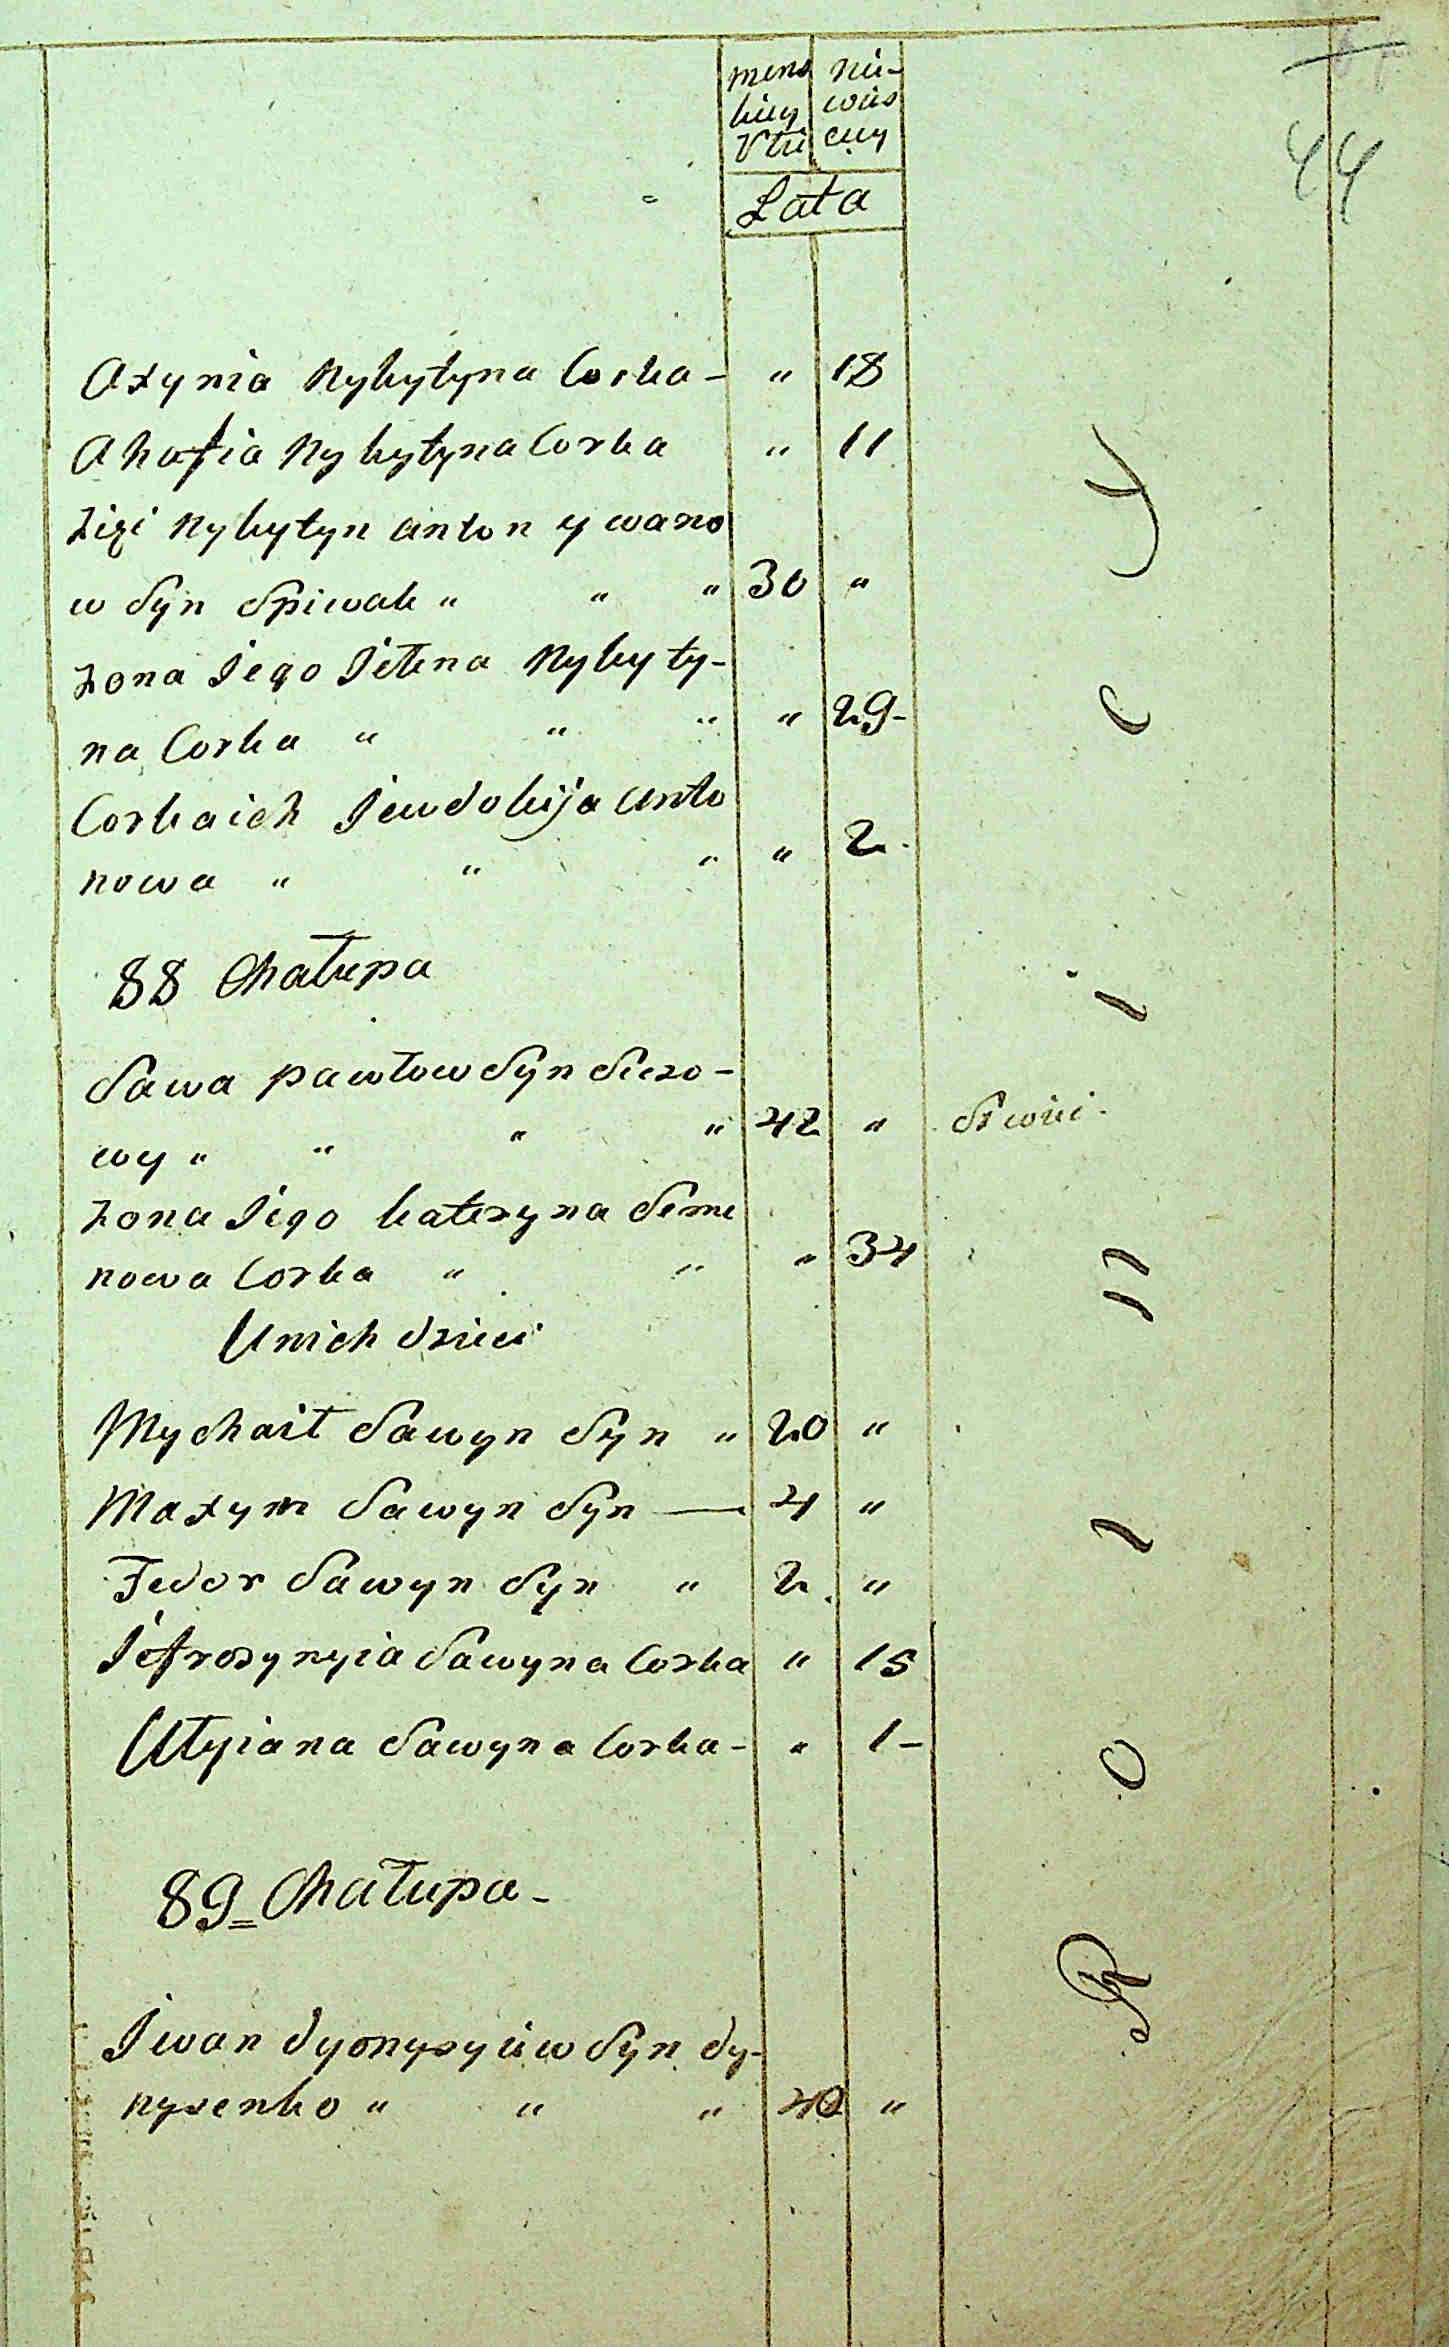 mens kiey Płci
nie wies ciey
Lata
44
Axynia Nykytyna Corka - " 18
Ahafia Nykytyna Corka " 11
Zięć Nykytyn anton ywano
w Syn Spiwak " " " 30 "
żona Jego Jełena Nykyty-
na Corka " " " " 29-
Corka ich Jewdokija anto
nowa " " " " 2.
88 Chałupa
Sawa pawłow Syn
wy " " " " 42 "
żona Jego kateryna Seme
nowa Corka " " " 34
U nich dzieci
Mychaił Sawyn Syn " 20 "
Maxym Sawyn Syn — 4 "
Fedor Sawyn Syn " 2. "
Jefrosynyia Sawyna Corka " 15
Ulyiana Sawyna Corka - " 1 -
89 = Chałupa -
Jwan dyonysyiw Syn dy-
nysenko " " " "
R o l n i c y